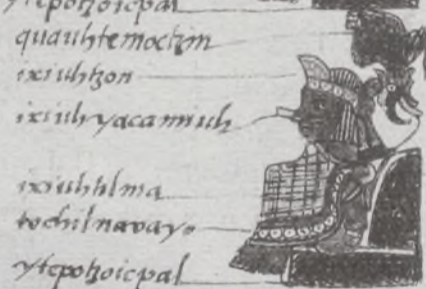 ytepotzoicpal
quauhtemoctzin
ixiuhtzon
ixiuhyacamiuh
ixiuhtilma
tochilnavayo
ytepotzoicpal